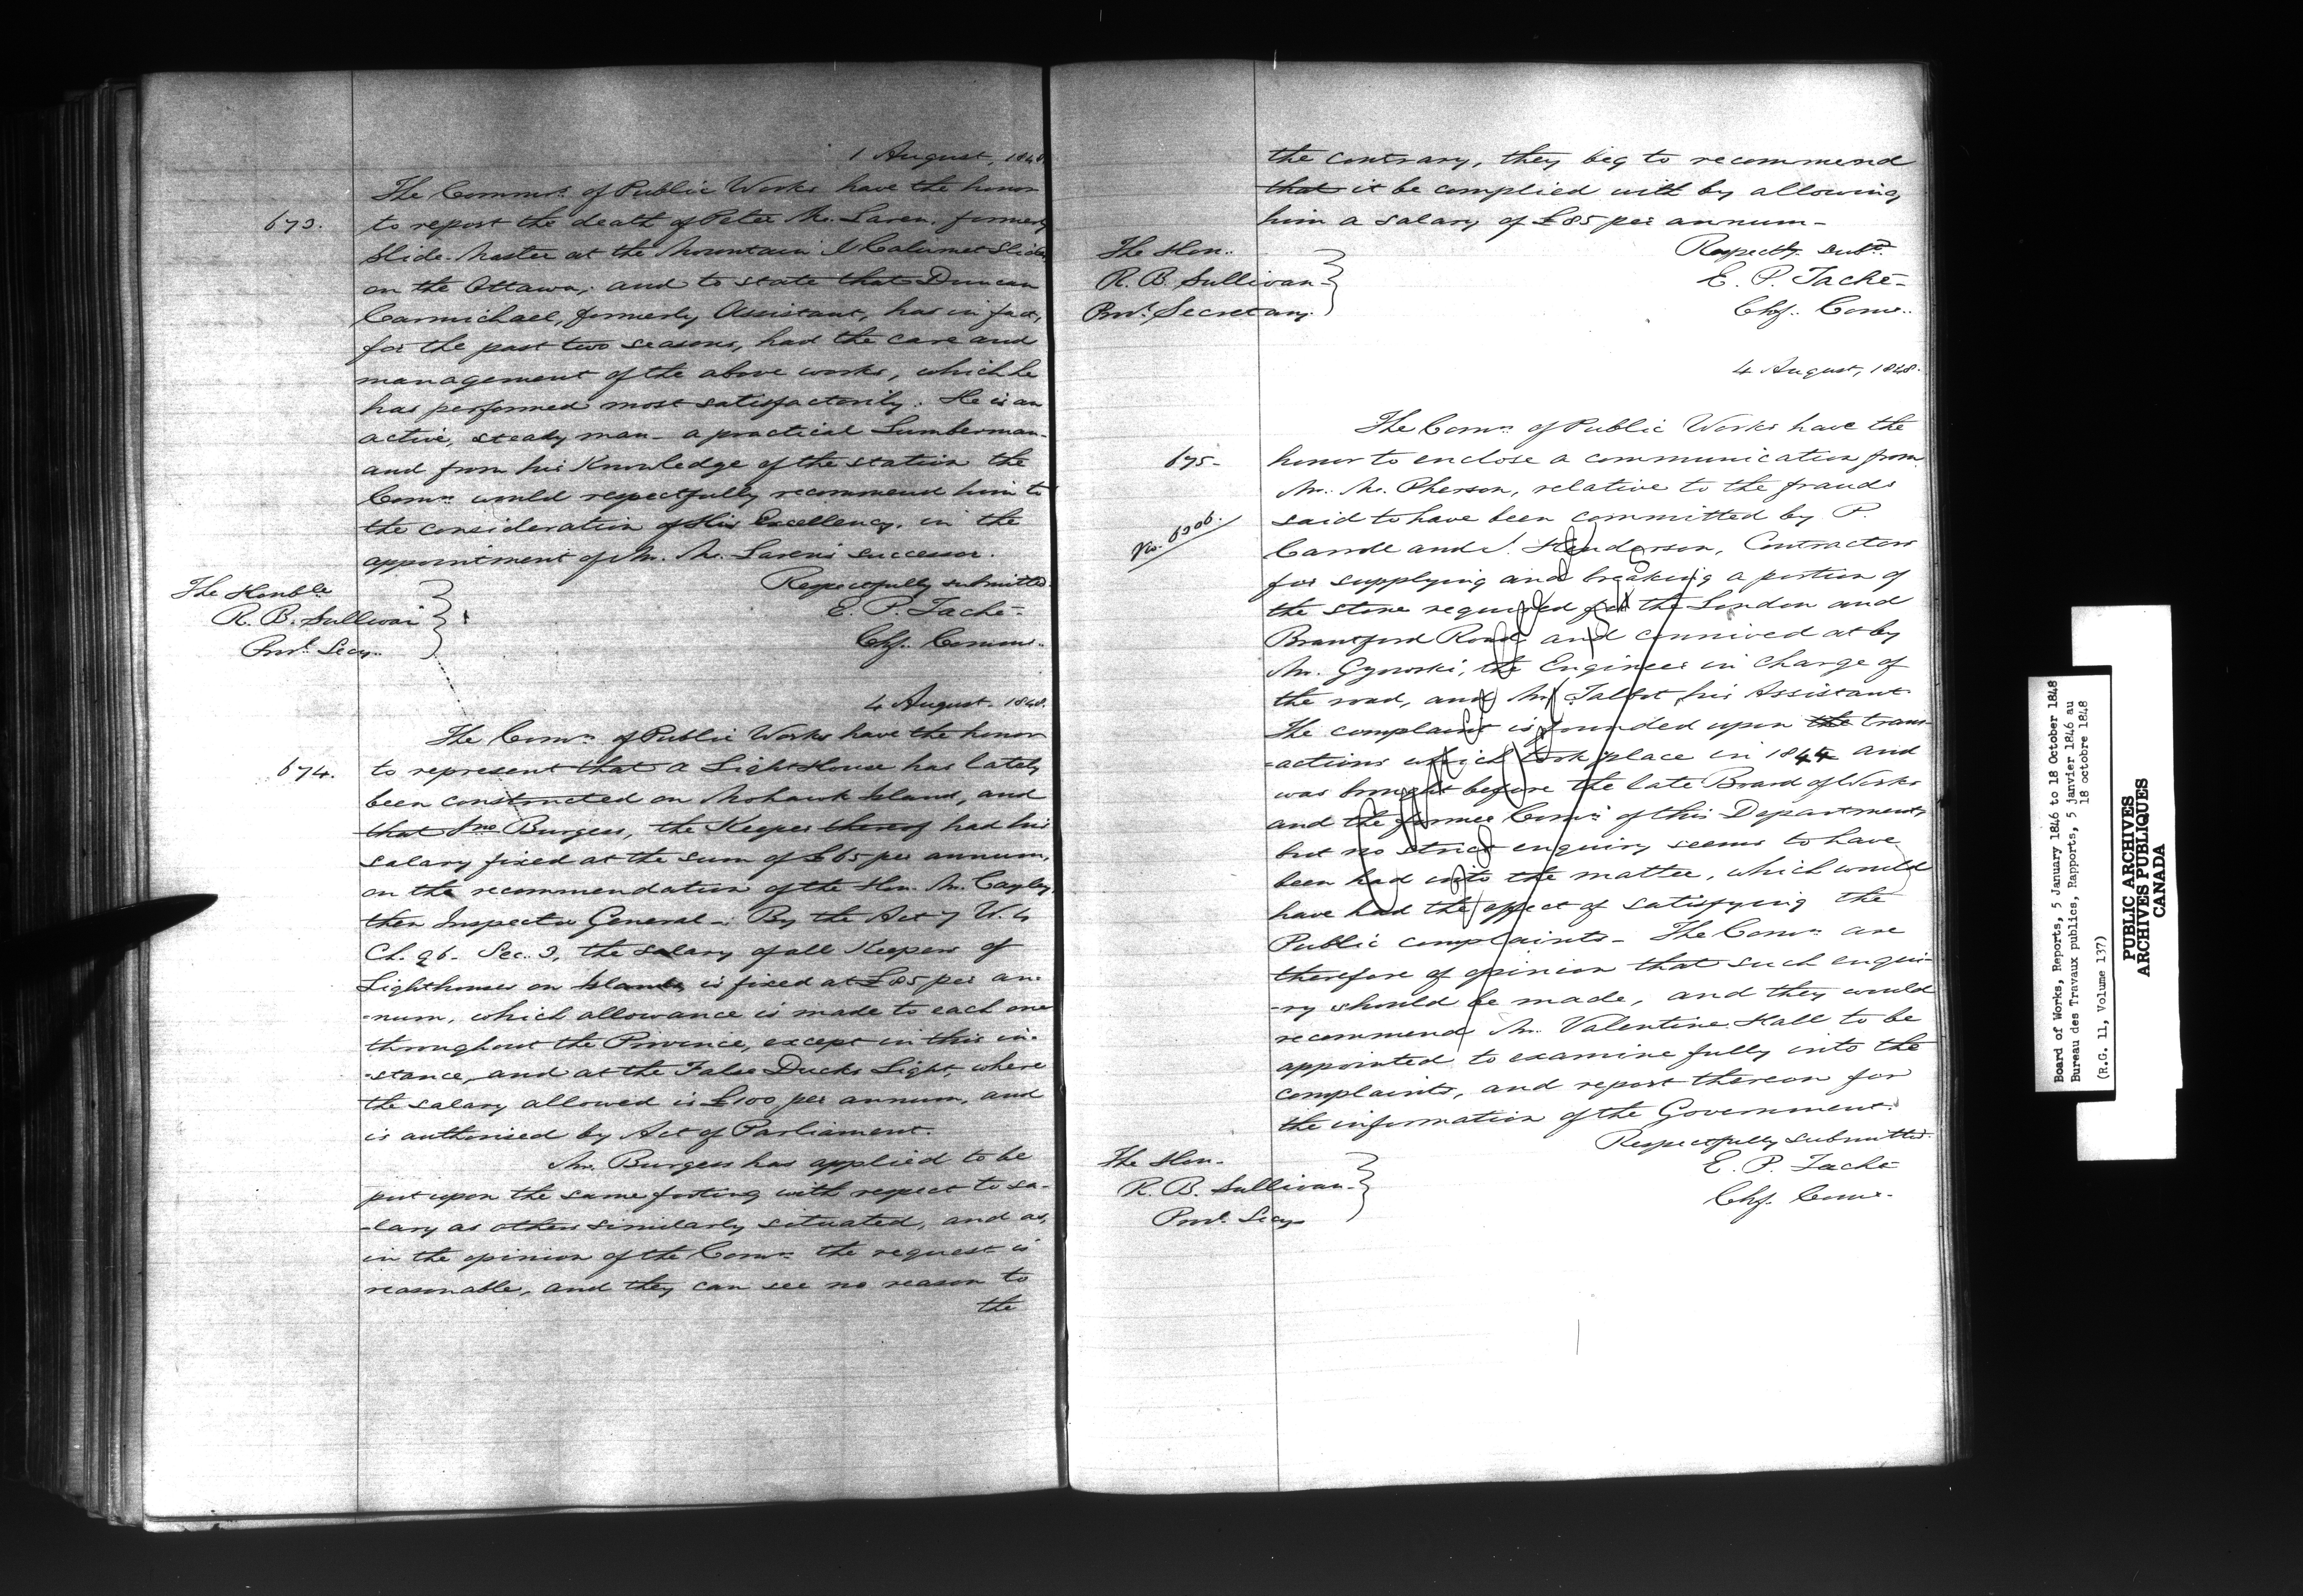 1 August, 1848
The Commrs. of Public Works have the honor
673. to report the death of Peter Mc. Laren, formerly
Slide-Master at the Mountain & Calumet Slides
on the Ottawa, and to state that Duncan
Carmichael, formerly Assistant, has in fact,
for the past two seasons, had the care and
management of the above works, which he
has performed most satisfactorily. He is an
active, steady man - a practical Lumberman -
and from his knowledge of the station the
Comrs. would respectfully recommend him to
the consideration of His Excellency, in the
appointment of Mr. Mc. Laren's successor.
Respectfully submitted.
The Honble
R. B. Sullivan
Provl. Secy.
E. P. Taché
Chf. Commr.
4 August - 1848.
The Comrs. of Public Works have the honor
674. to represent that a Light House has lately
been constructed on Mohawk Island, and
that Jno Burgess, the Keeper thereof had his
salary fixed at the sum of £65 per annum,
on the recommendation of the Hon. Mr. Cayley,
then Inspector General - By the Act 7 W. 4
Ch. 96 - Sec. 3, the salary of all Keepers of
Lighthouses on Islands is fixed at £85 per an-
-num, which allowance is made to each one
throughout the Province, except in this in-
-stance, and at the False Ducks Light, where
the salary allowed is £100 per annum, and
is authorised by Act of Parliament.
Mr. Burgess has applied to be
put upon the same footing with respect to sa-
-lary as others similarly situated, and as,
in the opinion of the Comrs. the request is
reasonable, and they can see no reason to
the
the contrary, they beg to recommend
that it be complied with by allowing
him a salary of £85 per annum -
Respectfy. subd.
The Hon.
R. B. Sullivan
Provl. Secretary.
E. P. Taché -
Chf. Comr.
4 August, 1848.
The Comrs. of Public Works have the
675 - honor to enclose a communication from
Mr. Mc. Pherson, relative to the frauds
said to have been committed by P.
No. 6306.
Carrole and J. Henderson, Contractors
for supplying and breaking a portion of
the stone required for the London and
Brantford Road and connived at by
Mr. Gzowski, the Engineer in charge of
the road, and Mr. Talbot, his Assistant.
The complaint is founded upon the trans-
-actions which took place in 1844 and
was brought before the late Board of Works
and the former Comrs. of this Department,
but no strict enquiry seems to have
been had into the matter, which would
have had the effect of satisfying the
Public complaints - The Comrs. are
therefore of opinion that such enqui-
-ry should be made, and they would
recommend Mr. Valentine Hall to be
appointed to examine fully into the
complaints, and report thereon for
the information of the Government.
Respectfully submitted.
The Hon.
R. B. Sullivan
Provl. Secy.
E. P. Taché
Chf. Comr.
Board of Works, Reports, 5 January 1846 to 18 October 1848
Bureau des Travaux publics, Rapports, 5 janvier 1846 au
18 octobre 1848
(R.G. 11, Volume 137)
PUBLIC ARCHIVES
ARCHIVES PUBLIQUES
CANADA